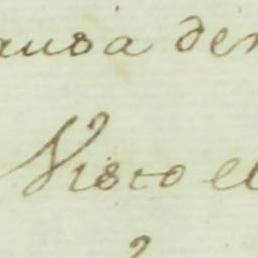 ausa de
Visto el